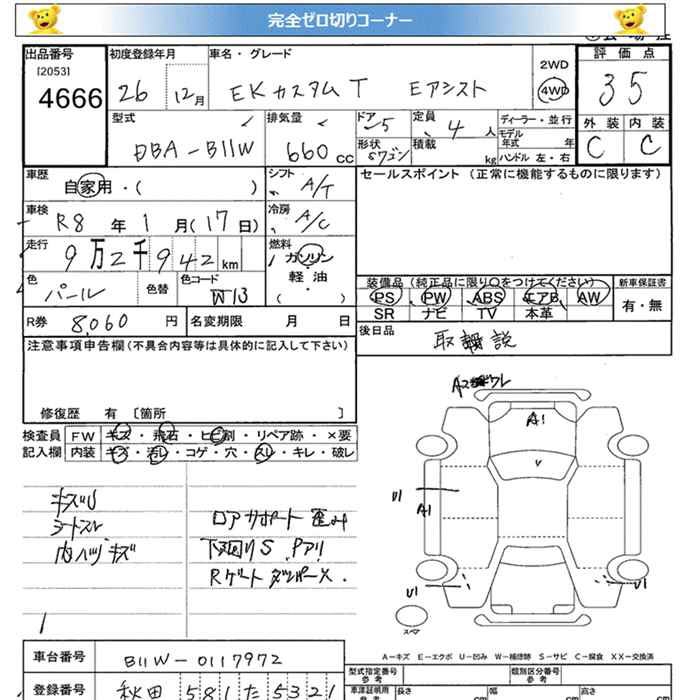 完全ゼロ切りコーナー
出品番号
[2053]
4666
初度登録年月
26 12月
車名・グレード
EKカスタムT Eアシスト
2WD
4WD
評価点
35
型式
DBA-B11W
排気量
660 CC
ドア
5
形状
5ワゴン
定員
4 人
積載
kg
ディーラー・並行
モデル
年式 年
ハンドル 左・右
外装 内装
C C
車歴
自家用・( )
シフト
A/T
セールスポイント (正常に機能するものに限ります)
車検
R8 年 1 月(17日)
冷房
A/C
走行
9万2千942km
燃料
ガソリン
軽・油
( )
色
パール
色替
色コード
W13
装備品(純正品に限り○をつけてください)
PS PW ABS エアB AW
SR ナビ TV 本革
新車保証書
有・無
R券 8060 円
名変期限 月 日
後日品
取説
注意事項申告欄(不具合内容等は具体的に記入して下さい)
修復歴 有 [箇所 ]
検査員
記入欄
FW キズ・飛石・ヒビ割・リペア跡・×要
内装 キズ・汚レ・コゲ・穴・スレ・キレ・破レ
キズU
シートスレ
内ハリ キズ
ロアサポート 歪み
下廻りS Pアリ
Rゲート ダンパー×.
A1
U1
A1
U1
U1
スペア
A-キズ E-エクボ U-凹み W-補修跡 S-サビ C-腐食 XX-交換済
車台番号
B11W-0117972
登録番号
秋田 581 た 5321
型式指定番号
参考
類別区分番号
参考
車庫証明用
参考
長さ
cm
幅
cm
高さ
cm